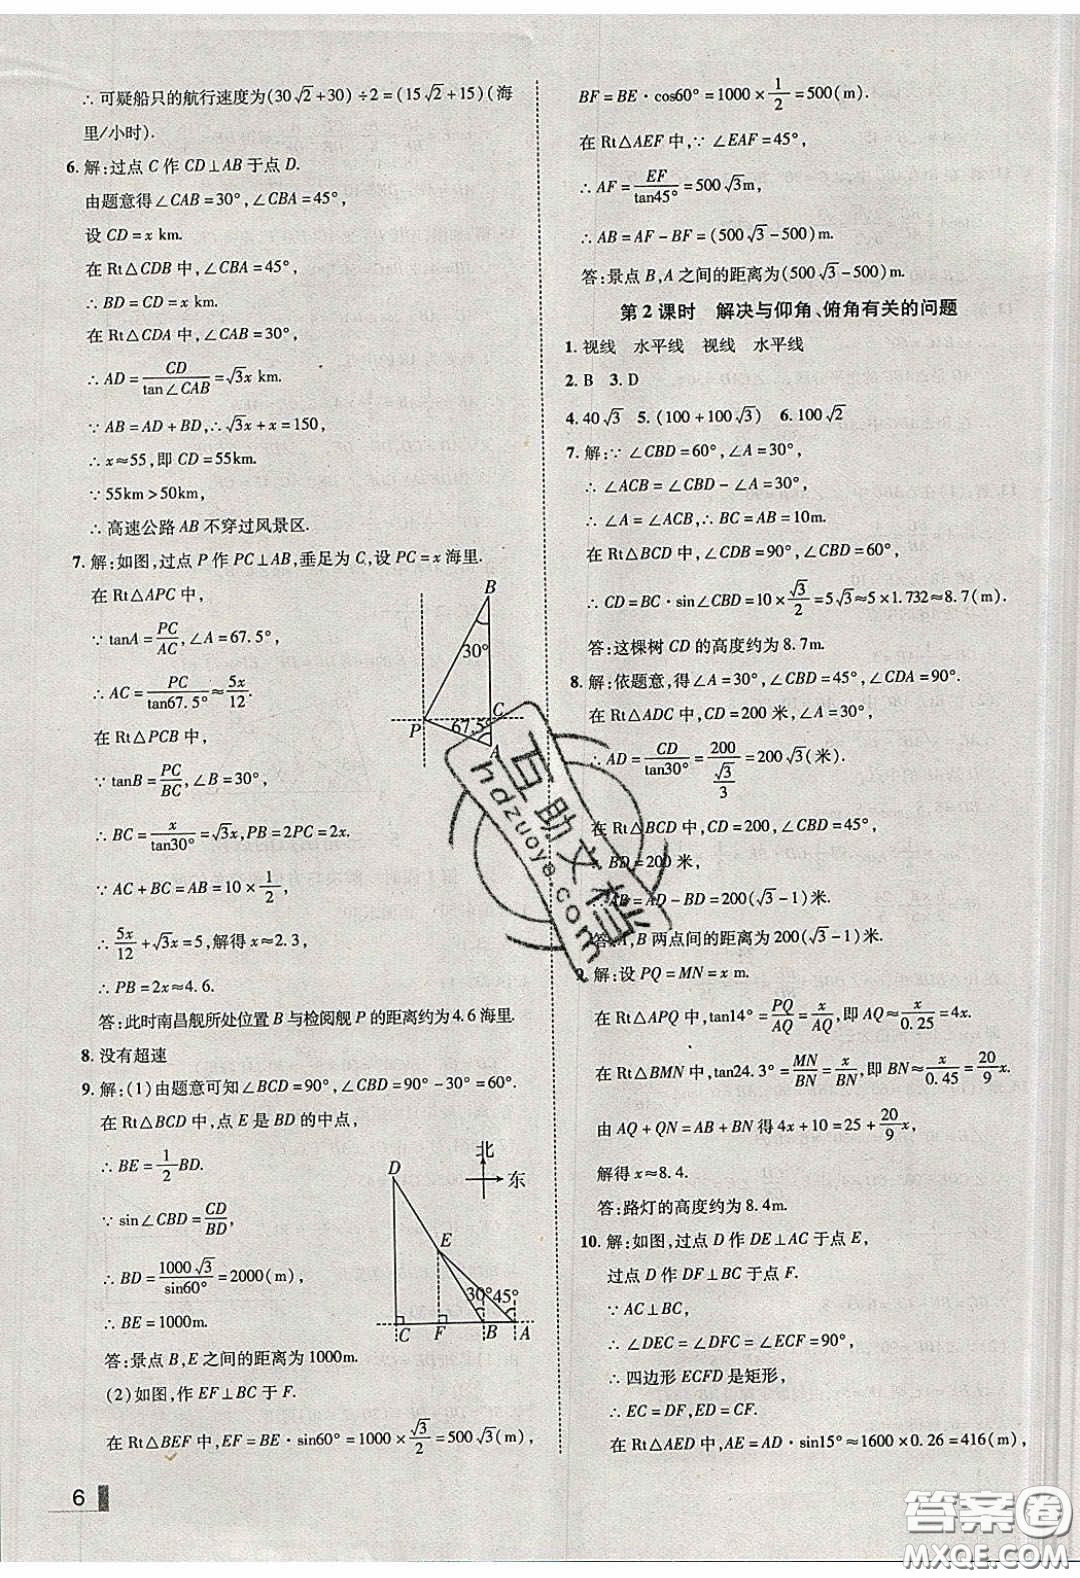 ∴可疑船只的航行速度为(30√2+30)÷2=(15√2+15)(海
里/小时).
6. 解:过点 C 作 CD⊥AB 于点 D.
由题意得∠CAB=30°,∠CBA=45°,
设 CD=x km.
在 Rt△CDB 中,∠CBA=45°,
∴BD=CD=x km.
在 Rt△CDA 中,∠CAB=30°,
∴AD=CD/tan∠CAB=√3x km.
∵AB=AD+BD,∴√3x+x=150,
∴x≈55,即 CD=55km.
∵55km>50km,
∴高速公路 AB 不穿过风景区.
7. 解:如图,过点 P 作 PC⊥AB,垂足为 C,设 PC=x 海里.
在 Rt△APC 中,
∵tanA=PC/AC,∠A=67.5°,
∴AC=PC/tan67.5°≈5x/12.
在 Rt△PCB 中,
∵tanB=PC/BC,∠B=30°,
∴BC=x/tan30°=√3x,PB=2PC=2x.
∵AC+BC=AB=10×1/2,
∴5x/12+√3x=5,解得 x≈2.3,
∴PB=2x≈4.6.
答:此时南昌舰所处位置 B 与检阅舰 P 的距离约为 4.6 海里.
B
30°
C
P
67.5°
A
8. 没有超速
9. 解:(1)由题意可知∠BCD=90°,∠CBD=90°-30°=60°.
在 Rt△BCD 中,点 E 是 BD 的中点,
∴BE=1/2BD.
∵sin∠CBD=CD/BD,
∴BD=1000√3/sin60°=2000(m),
∴BE=1000m.
答:景点 B,E 之间的距离为 1000m.
(2)如图,作 EF⊥BC 于 F.
在 Rt△BEF 中,EF=BE·sin60°=1000×√3/2=500√3(m),
北
东
D
E
30°45°
C F B A
6
BF=BE·cos60°=1000×1/2=500(m).
在 Rt△AEF 中,∵∠EAF=45°,
∴AF=EF/tan45°=500√3m,
∴AB=AF-BF=(500√3-500)m.
答:景点 B,A 之间的距离为(500√3-500)m.
第 2 课时 解决与仰角、俯角有关的问题
1. 视线 水平线 视线 水平线
2. B 3. D
4. 40√3 5. (100+100√3) 6. 100√2
7. 解:∵∠CBD=60°,∠A=30°,
∴∠ACB=∠CBD-∠A=30°,
∴∠A=∠ACB,∴BC=AB=10m.
在 Rt△BCD 中,∠CDB=90°,∠CBD=60°,
∴CD=BC·sin∠CBD=10×√3/2=5√3≈5×1.732≈8.7(m).
答:这棵树 CD 的高度约为 8.7m.
8. 解:依题意,得∠A=30°,∠CBD=45°,∠CDA=90°.
在 Rt△ADC 中,CD=200 米,∠A=30°,
∴AD=CD/tan30°=200/(√3/3)=200√3(米).
在 Rt△BCD 中,CD=200 米,∠CBD=45°,
∴BD=200 米,
∴AB=AD-BD=200(√3-1)米.
答:A,B 两点间的距离为 200(√3-1)米.
9. 解:设 PQ=MN=x m.
在 Rt△APQ 中,tan14°=PQ/AQ=x/AQ,即 AQ≈x/0.25=4x.
在 Rt△BMN 中,tan24.3°=MN/BN=x/BN,即 BN≈x/0.45=20/9x.
由 AQ+QN=AB+BN 得 4x+10=25+20/9x,
解得 x≈8.4.
答:路灯的高度约为 8.4m.
10. 解:如图,过点 D 作 DE⊥AC 于点 E,
过点 D 作 DF⊥BC 于点 F.
∵AC⊥BC,
∴∠DEC=∠DFC=∠ECF=90°,
∴四边形 ECFD 是矩形,
∴EC=DF,ED=CF.
在 Rt△AED 中,AE=AD·sin15°≈1600×0.26=416(m),
互助文档
hdzuoye.com
答案圈
MXQE.COM